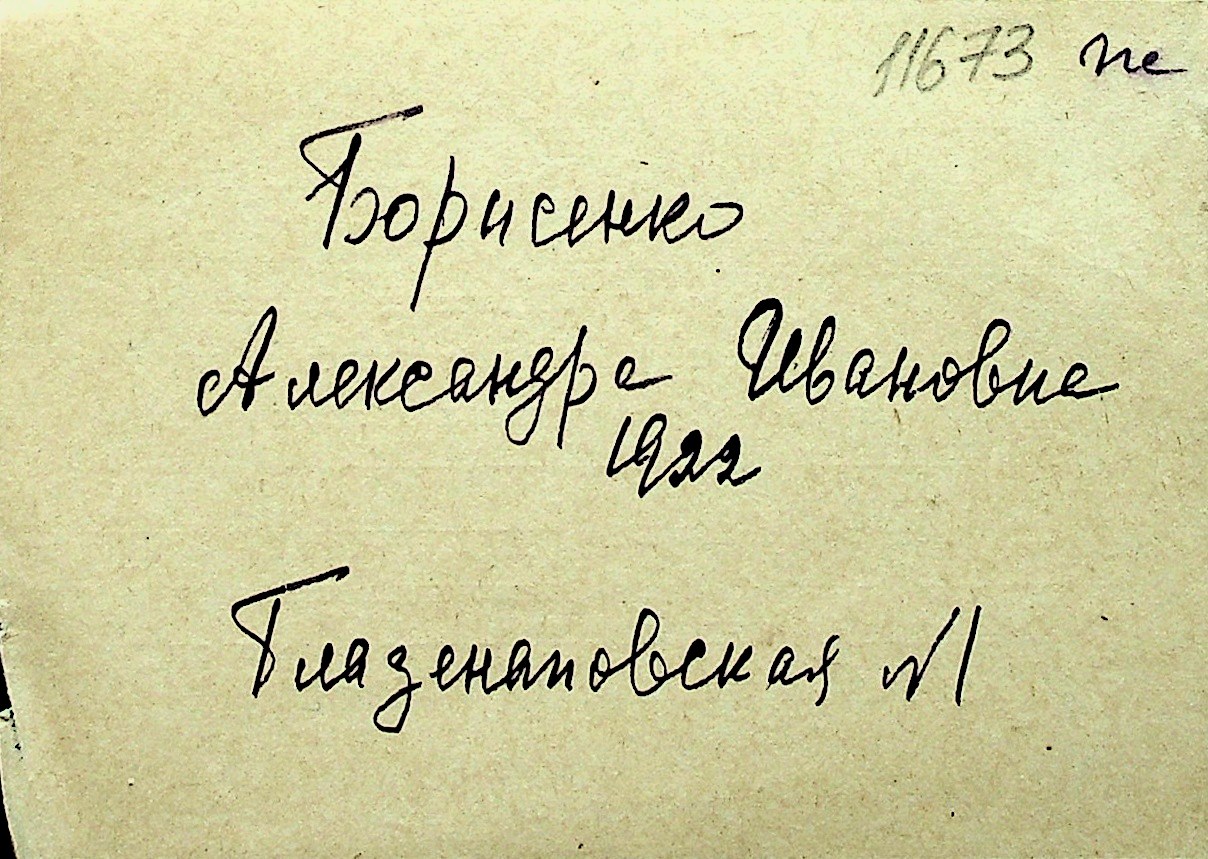 11673 пе
Борисенко
Александра Ивановна
1922
Глазенаповская №1